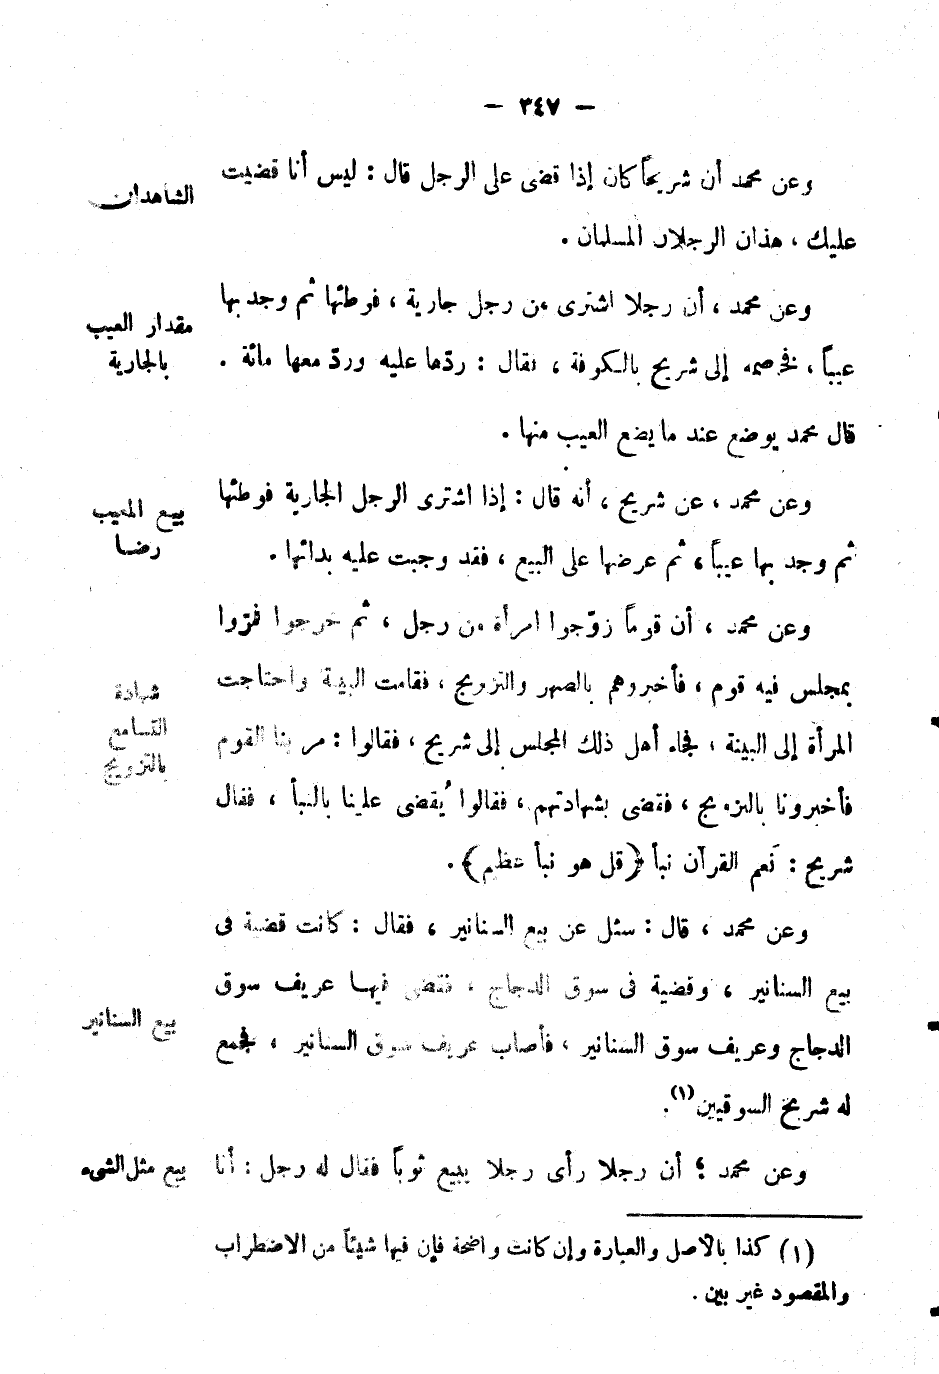 — ٣٤٧ —
وعن محمد أن شريحاً كان إذا قضى على الرجل قال : ليس أنا قضيت
الشاهدان
عليك ، هذان الرجلان المسلمان .
وعن محمد ، أن رجلا اشترى من رجل جارية ، فوطئها ثم وجد بها
مقدار العيب
بالجارية
عيباً ، فخاصمه إلى شريح بالكوفة ، فقال : ردّها عليه وردّ معها مائة .
قال محمد يوضع عند ما يضع العيب منها .
وعن محمد ، عن شريح ، أنه قال : إذا اشترى الرجل الجارية فوطئها
بيع المعيب
رضا
ثم وجد بها عيباً ، ثم عرضها على البيع ، فقد وجبت عليه بدائها .
وعن محمد ، أن قوماً زوّجوا امرأة من رجل ، ثم خرجوا فمرّوا
بمجلس فيه قوم ، فأخبروهم بالصهر والتزويج ، فقامت البينة واحتاجت
شهادة
التسامع
بالتزويج
المرأة إلى البينة ، فجاء أهل ذلك المجلس إلى شريح ، فقالوا : مر بنا القوم
فأخبرونا بالتزويج ، فقضى بشهادتهم ، فقالوا يُقضى علينا بالنبأ ، فقال
شريح : نَعم القرآن نبأ ﴿قل هو نبأ عظيم﴾ .
وعن محمد ، قال : سئل عن بيع السنانير ، فقال : كانت قضية فى
بيع السنانير ، وقضية فى سوق الدجاج ، فقضى فيها عريف سوق
بيع السنانير
الدجاج وعريف سوق السنانير ، فأصاب عريف سوق السنانير ، فجمع
له شريح السوقيين(١) .
وعن محمد ؛ أن رجلا رأى رجلا يبيع ثوباً فقال له رجل : أنا
بيع مثل الشىء
(١) كذا بالأصل والعبارة وإن كانت واضحة فإن فيها شيئاً من الاضطراب
والمقصود غير بين .